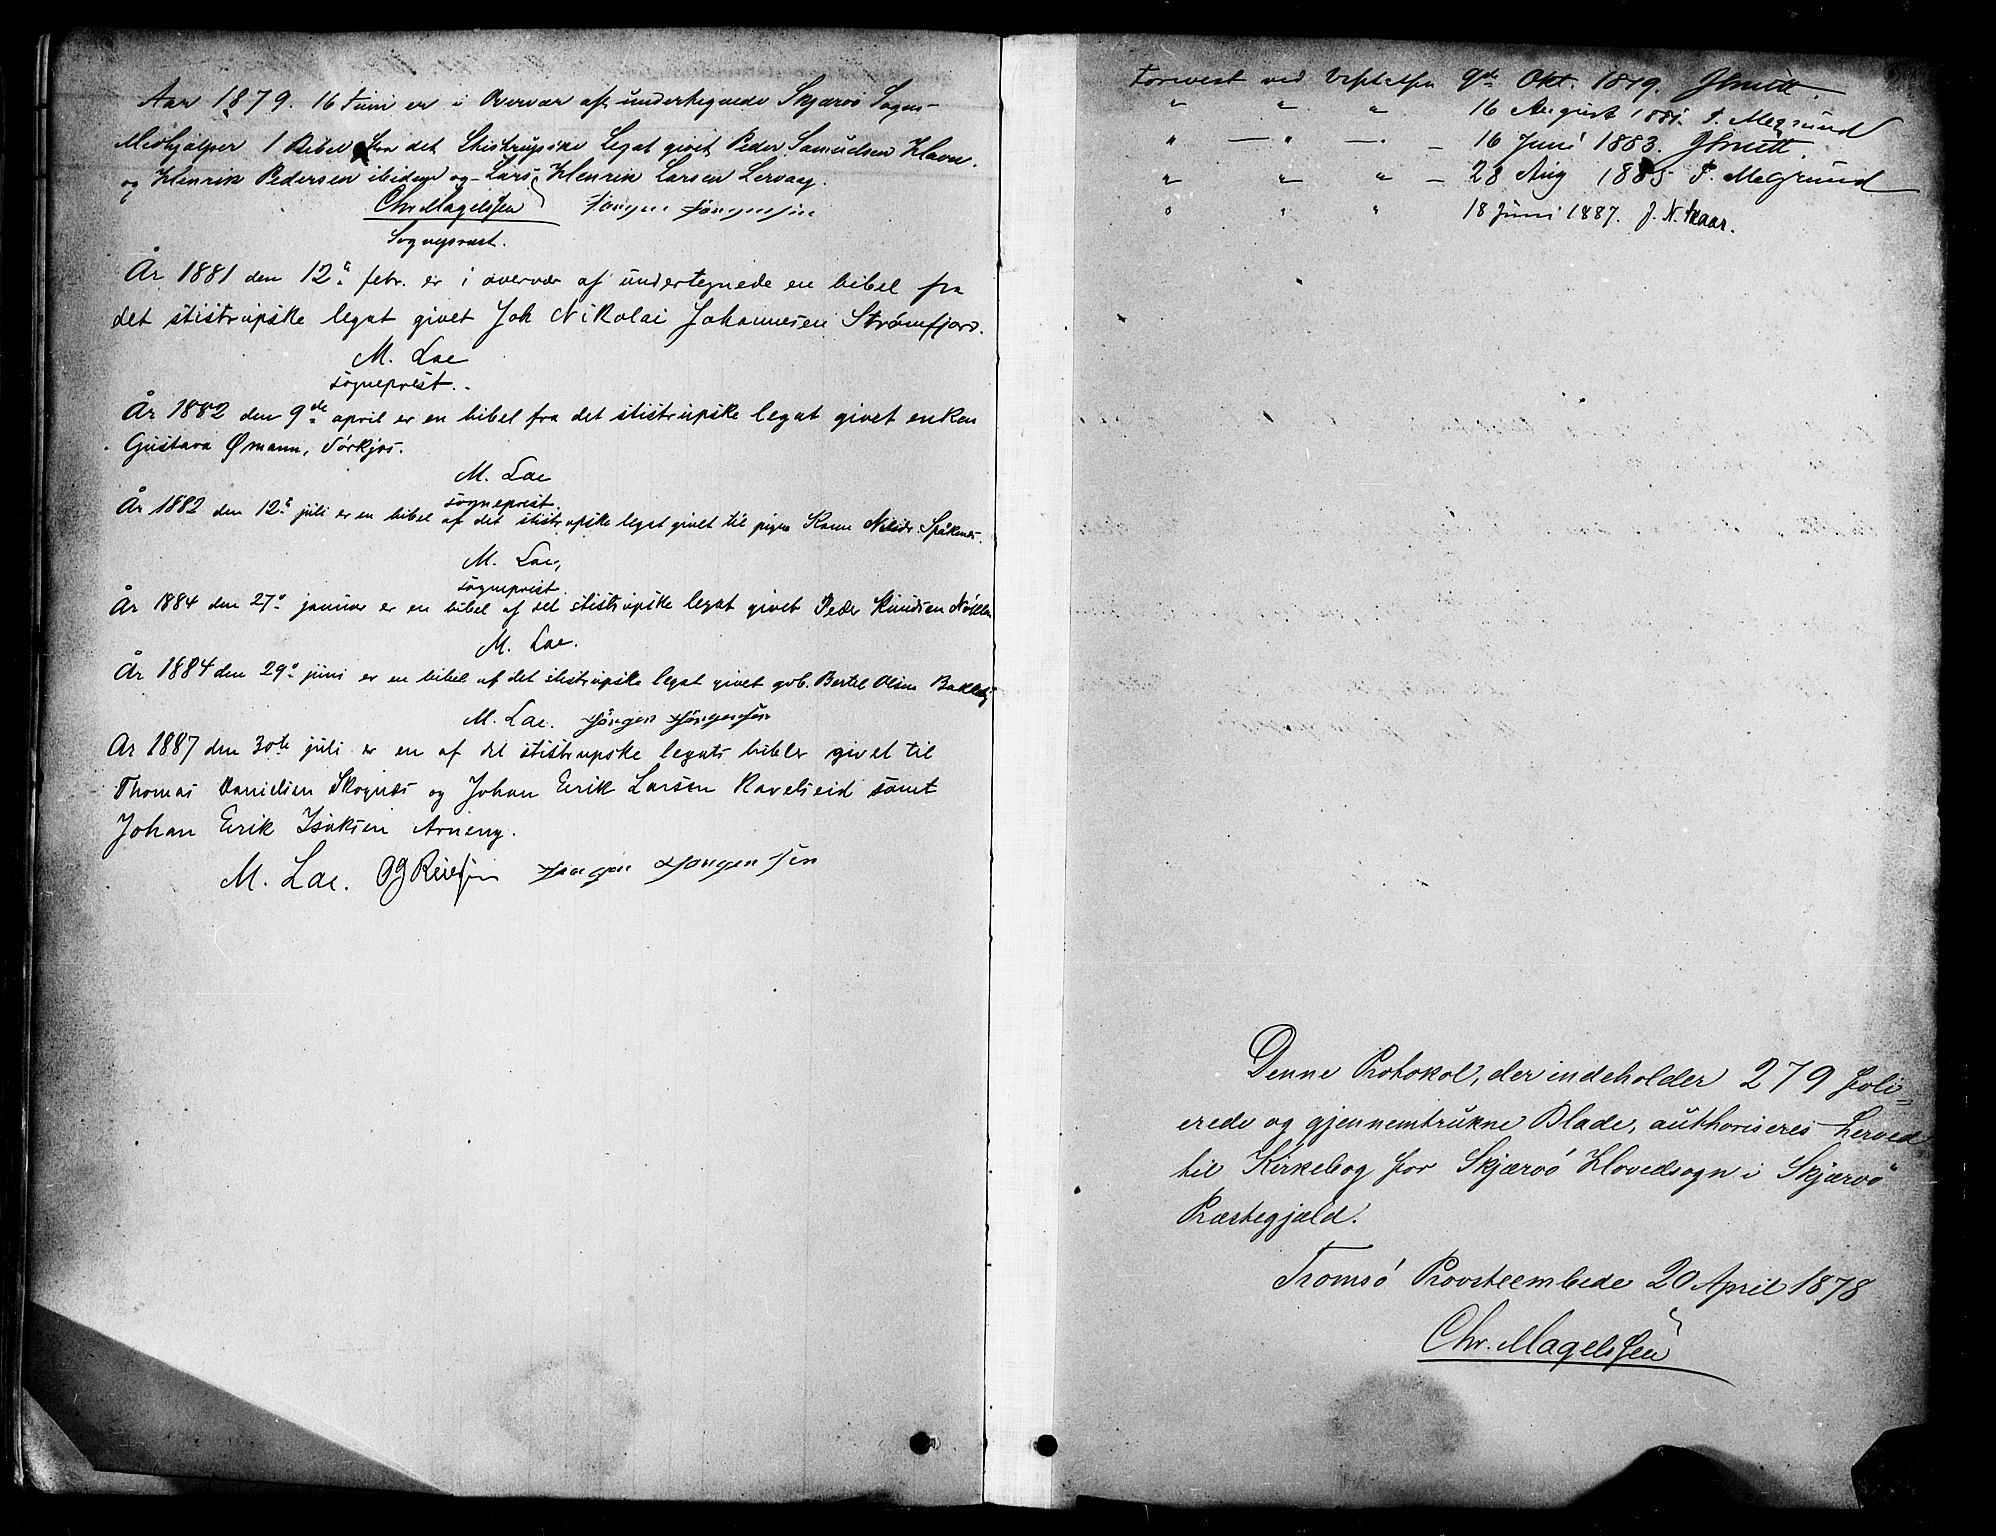 Aar 1879. 16 Juni er i Overvær af undertegnede Skjærvö Sogns
Medhjælper 1 Bibel fra det Stistrupske Legat givet Peder Samuelsen Havn.
og Henrik Pedersen ibidem og Lars Henrik Larsen Lervaag.
Chr. Magelssen Jörgen Jörgensen
Sognepræst.
År 1881 den 12te febr. er i overvær af undertegnede en bibel fra
det stistrupske legat givet Joh Nikolai Johannesen Strømfjord.
M. Lae
sogneprest.
År 1882 den 9de april er en bibel fra det stistrupske legat givet enken
Gustava Ømann, Sörkjos.
M. Lae
sogneprest.
År 1882 den 12te juli er en bibel af det stistrupske legat givet til pigen Spåknes.
M. Lae,
sogneprest
År 1884 den 27de januar er en bibel af det stistrupske legat givet Peder Knudsen
M. Lae.
År 1884 den 29de juni er en bibel af det stistrupske legat givet Bertel Olsen
M. Lae. Jörgen Jörgensen
År 1887 den 30te juli er en af det stistrupske legats bibler givet til
Thomas Danielsen Skognes og Johan Erik Larsen Ravelseid samt
Johan Erik Isaksen Arneng.
M. Lae. Jörgen Jörgensen
Forevist ved 9de Okt. 1879.
" " " 16 August 1881.
" — " — " — 16 Juni 1883.
" " " — 28 Aug 1885
" " " 18 juni 1887. J. N. Skaar.
Denne Protokol, der indeholder 279 foli-
erede og gjennemtrukne Blade, authoriseres herved
til Kirkebog for Skjærvö Hovedsogn i Skjærvö
Præstegjæld.
Tromsö Provsteembede 20 April 1878
Chr. Magelssen